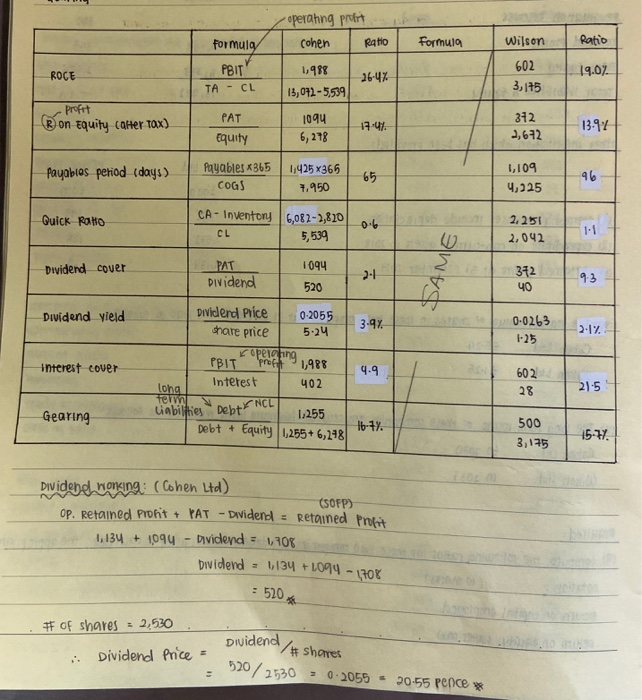 operating profit
Formula Cohen Ratio Formula Wilson Ratio
ROCE PBIT / TA - CL 1,988 / 13,072-5,539 26.4% 602 / 3,175 19.0%
Profit
(R) on Equity (after tax) PAT / Equity 1094 / 6,278 17.4% 372 / 2,672 13.9%
Payables period (days) Payables x365 / COGS 1,425 x365 / 7,950 65 1,109 / 4,225 96
Quick Ratio CA - Inventory / CL 6,082-2,820 / 5,539 0.6 2,251 / 2,042 1.1
SAME
Dividend cover PAT / Dividend 1094 / 520 2.1 372 / 40 9.3
Dividend yield Dividend Price / share price 0.2055 / 5.24 3.9% 0.0263 / 1.25 2.1%
operating profit
Interest cover PBIT / Interest 1,988 / 402 4.9 602 / 28 21.5
long term liabilities NCL
Gearing Debt / Debt + Equity 1,255 / 1,255+6,278 16.7% 500 / 3,175 15.7%
Dividend working: (Cohen Ltd)
(SOFP)
Op. Retained Profit + PAT - Dividend = Retained Profit
1,134 + 1,094 - Dividend = 1,708
Dividend = 1,134 + 1,094 - 1,708
= 520
# of shares = 2,530
∴ Dividend Price = Dividend / # shares
= 520 / 2530 = 0.2055 = 20.55 pence